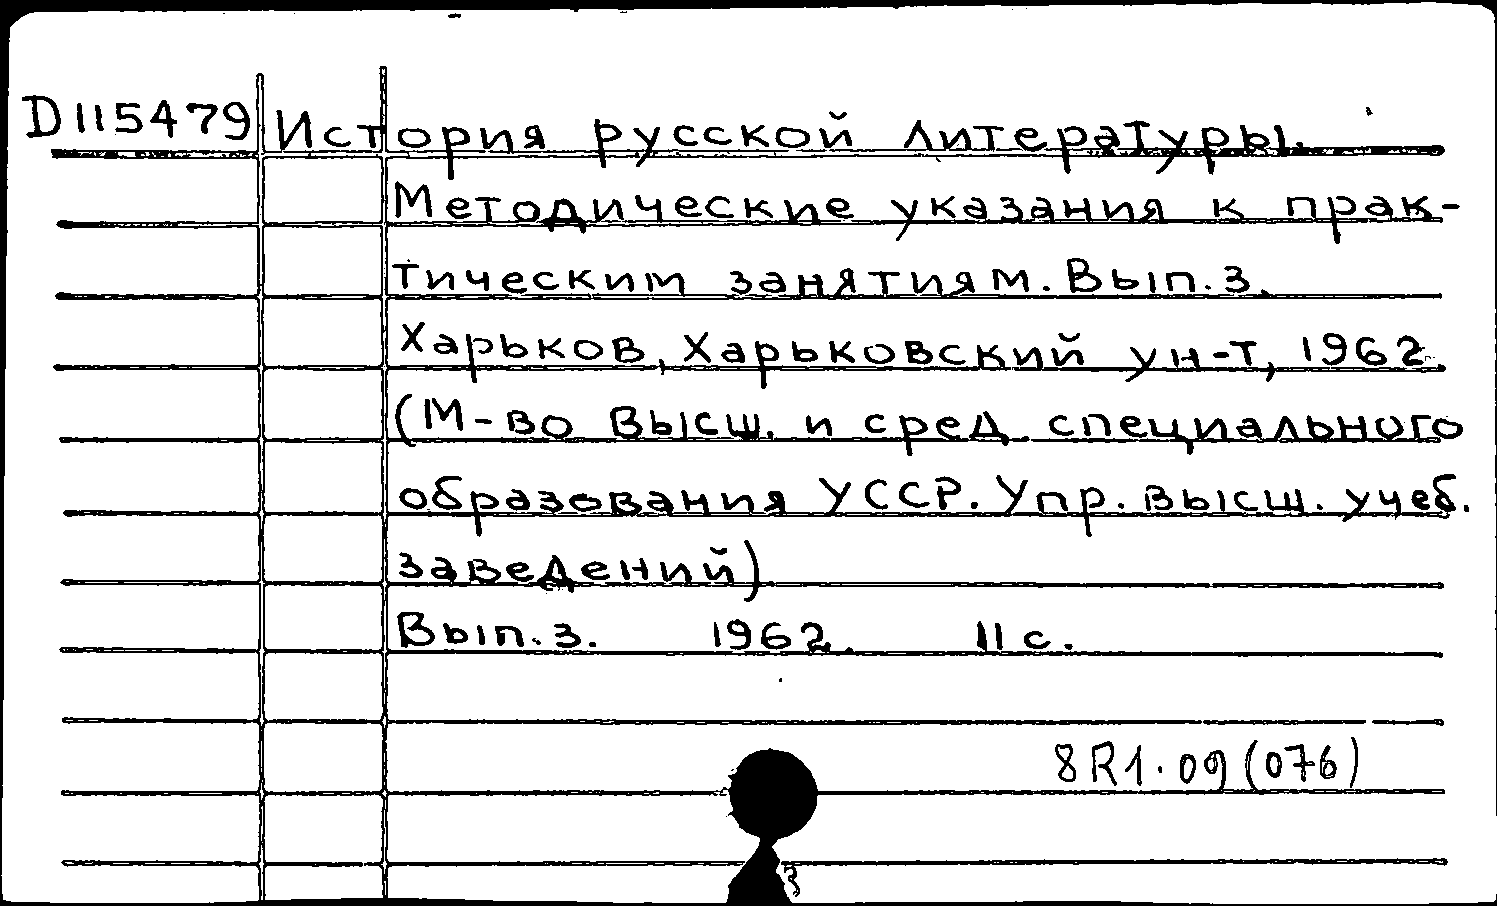 D115479 История русской литературы.
Методические указания к прак-
тическим занятиям. Вып. 3.
Харьков, Харьковский ун-т, 1962
(М-во высш. и сред. специального
образования УССР. Упр. высш. учеб.
заведений)
Вып. 3. 1962. 11 с.
8R1.09(076)
3